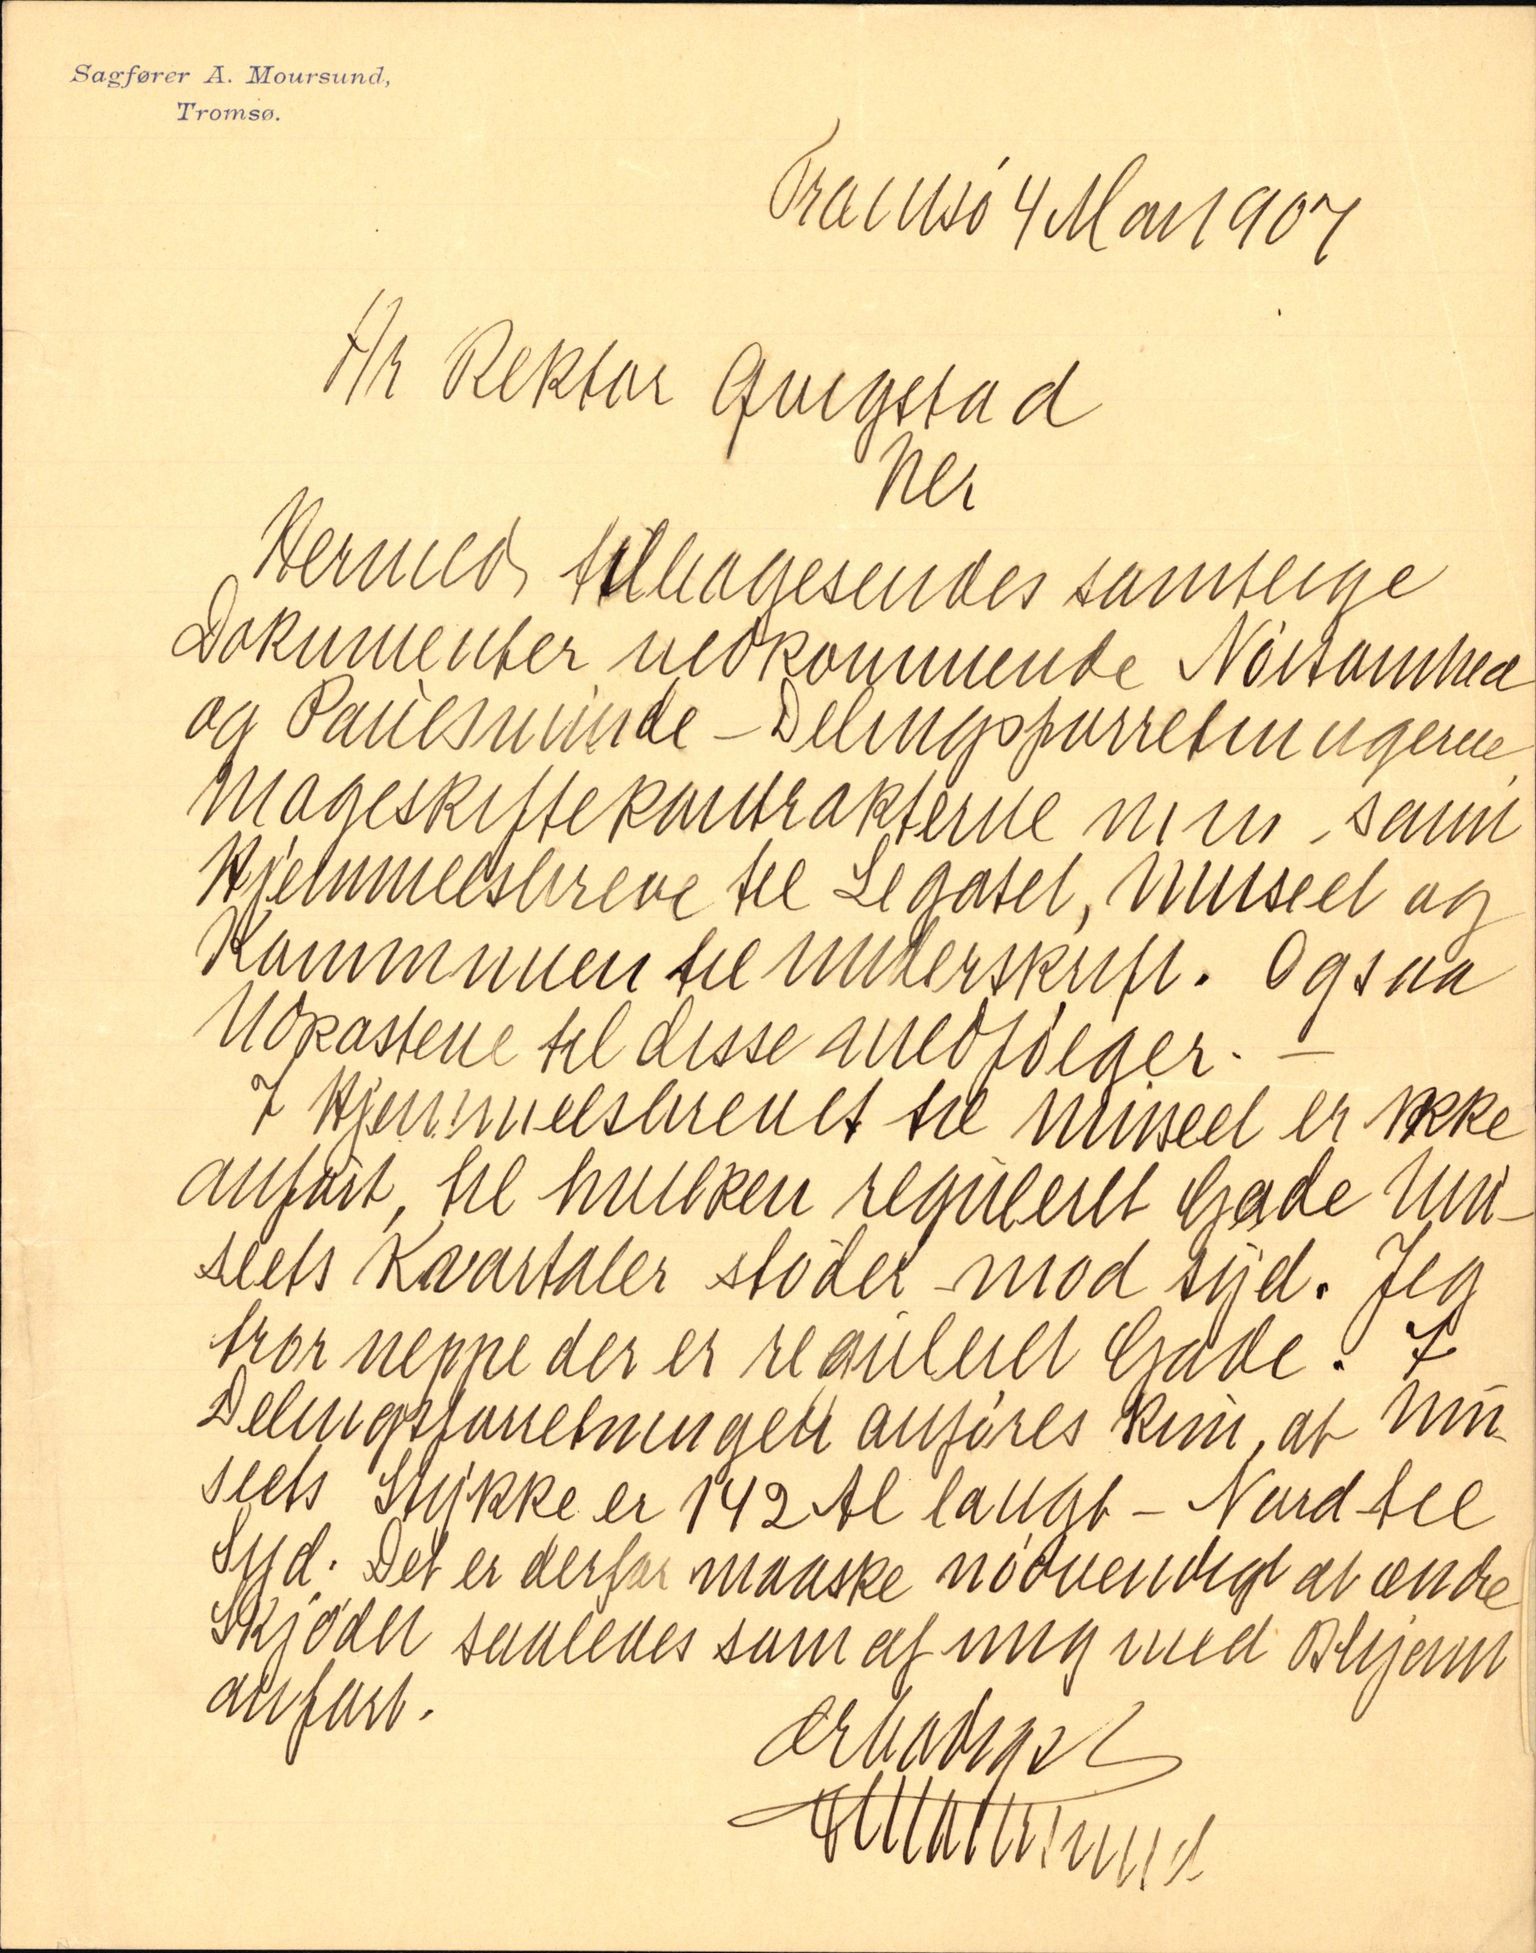 Sagfører A. Moursund,
Tromsø.
Tromsö 4 Mai 1907
Hr Rektor Qvigstad
Her
Hermed tilbagesendes samtlige
Dokumenter vedkommende Nöisomhed
og Paulsminde – Delingsforretningerne,
Mageskiftekontrakterne m m, samt
Hjemmelsbreve til Legatet, Museet og
Kommunen til Underskrift. Ogsaa
Udkastene til disse medfölger. –
I Hjemmelsbrevet til Museet er ikke
anfört, til hvilken reguleret Gade Mu-
seets Kvartaler stöder mod syd. Jeg
tror neppe der er reguleret Gade. I
Delingsforretningen anföres kun, at Mu-
seets Stykke er 142 Al langt – Nord til
Syd. Det er derfor maaske nödvendigt at ændre
Skjödet saaledes som af mig med Blyant
anfört.
Ærbödigst
A Moursund